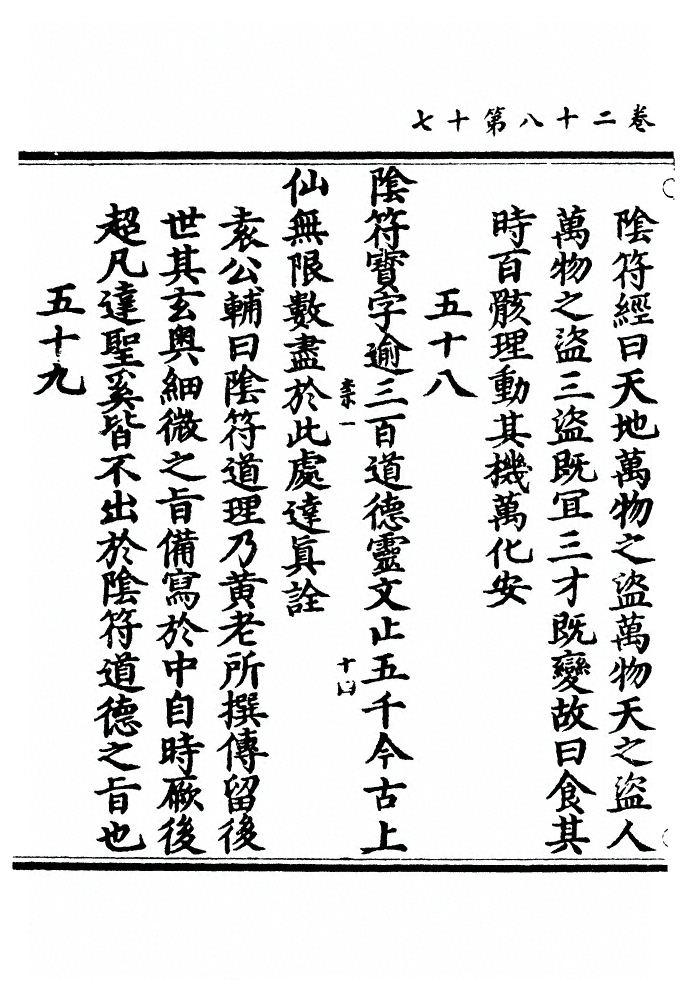 卷二十八第十七
陰符經曰天地萬物之盜萬物天之盜人
萬物之盜三盜既冝三才既變故曰食其
時百骸理動其機萬化安
五十八
陰符寶字逾三百道德靈文止五千今古上
柰一
十四
仙無限數盡於此處達眞詮
袁公輔曰陰符道理乃黄老所撰傳留後
世其玄奧細微之旨備寫於中自時厥後
超凡達聖奚皆不出於陰符道德之旨也
五十九